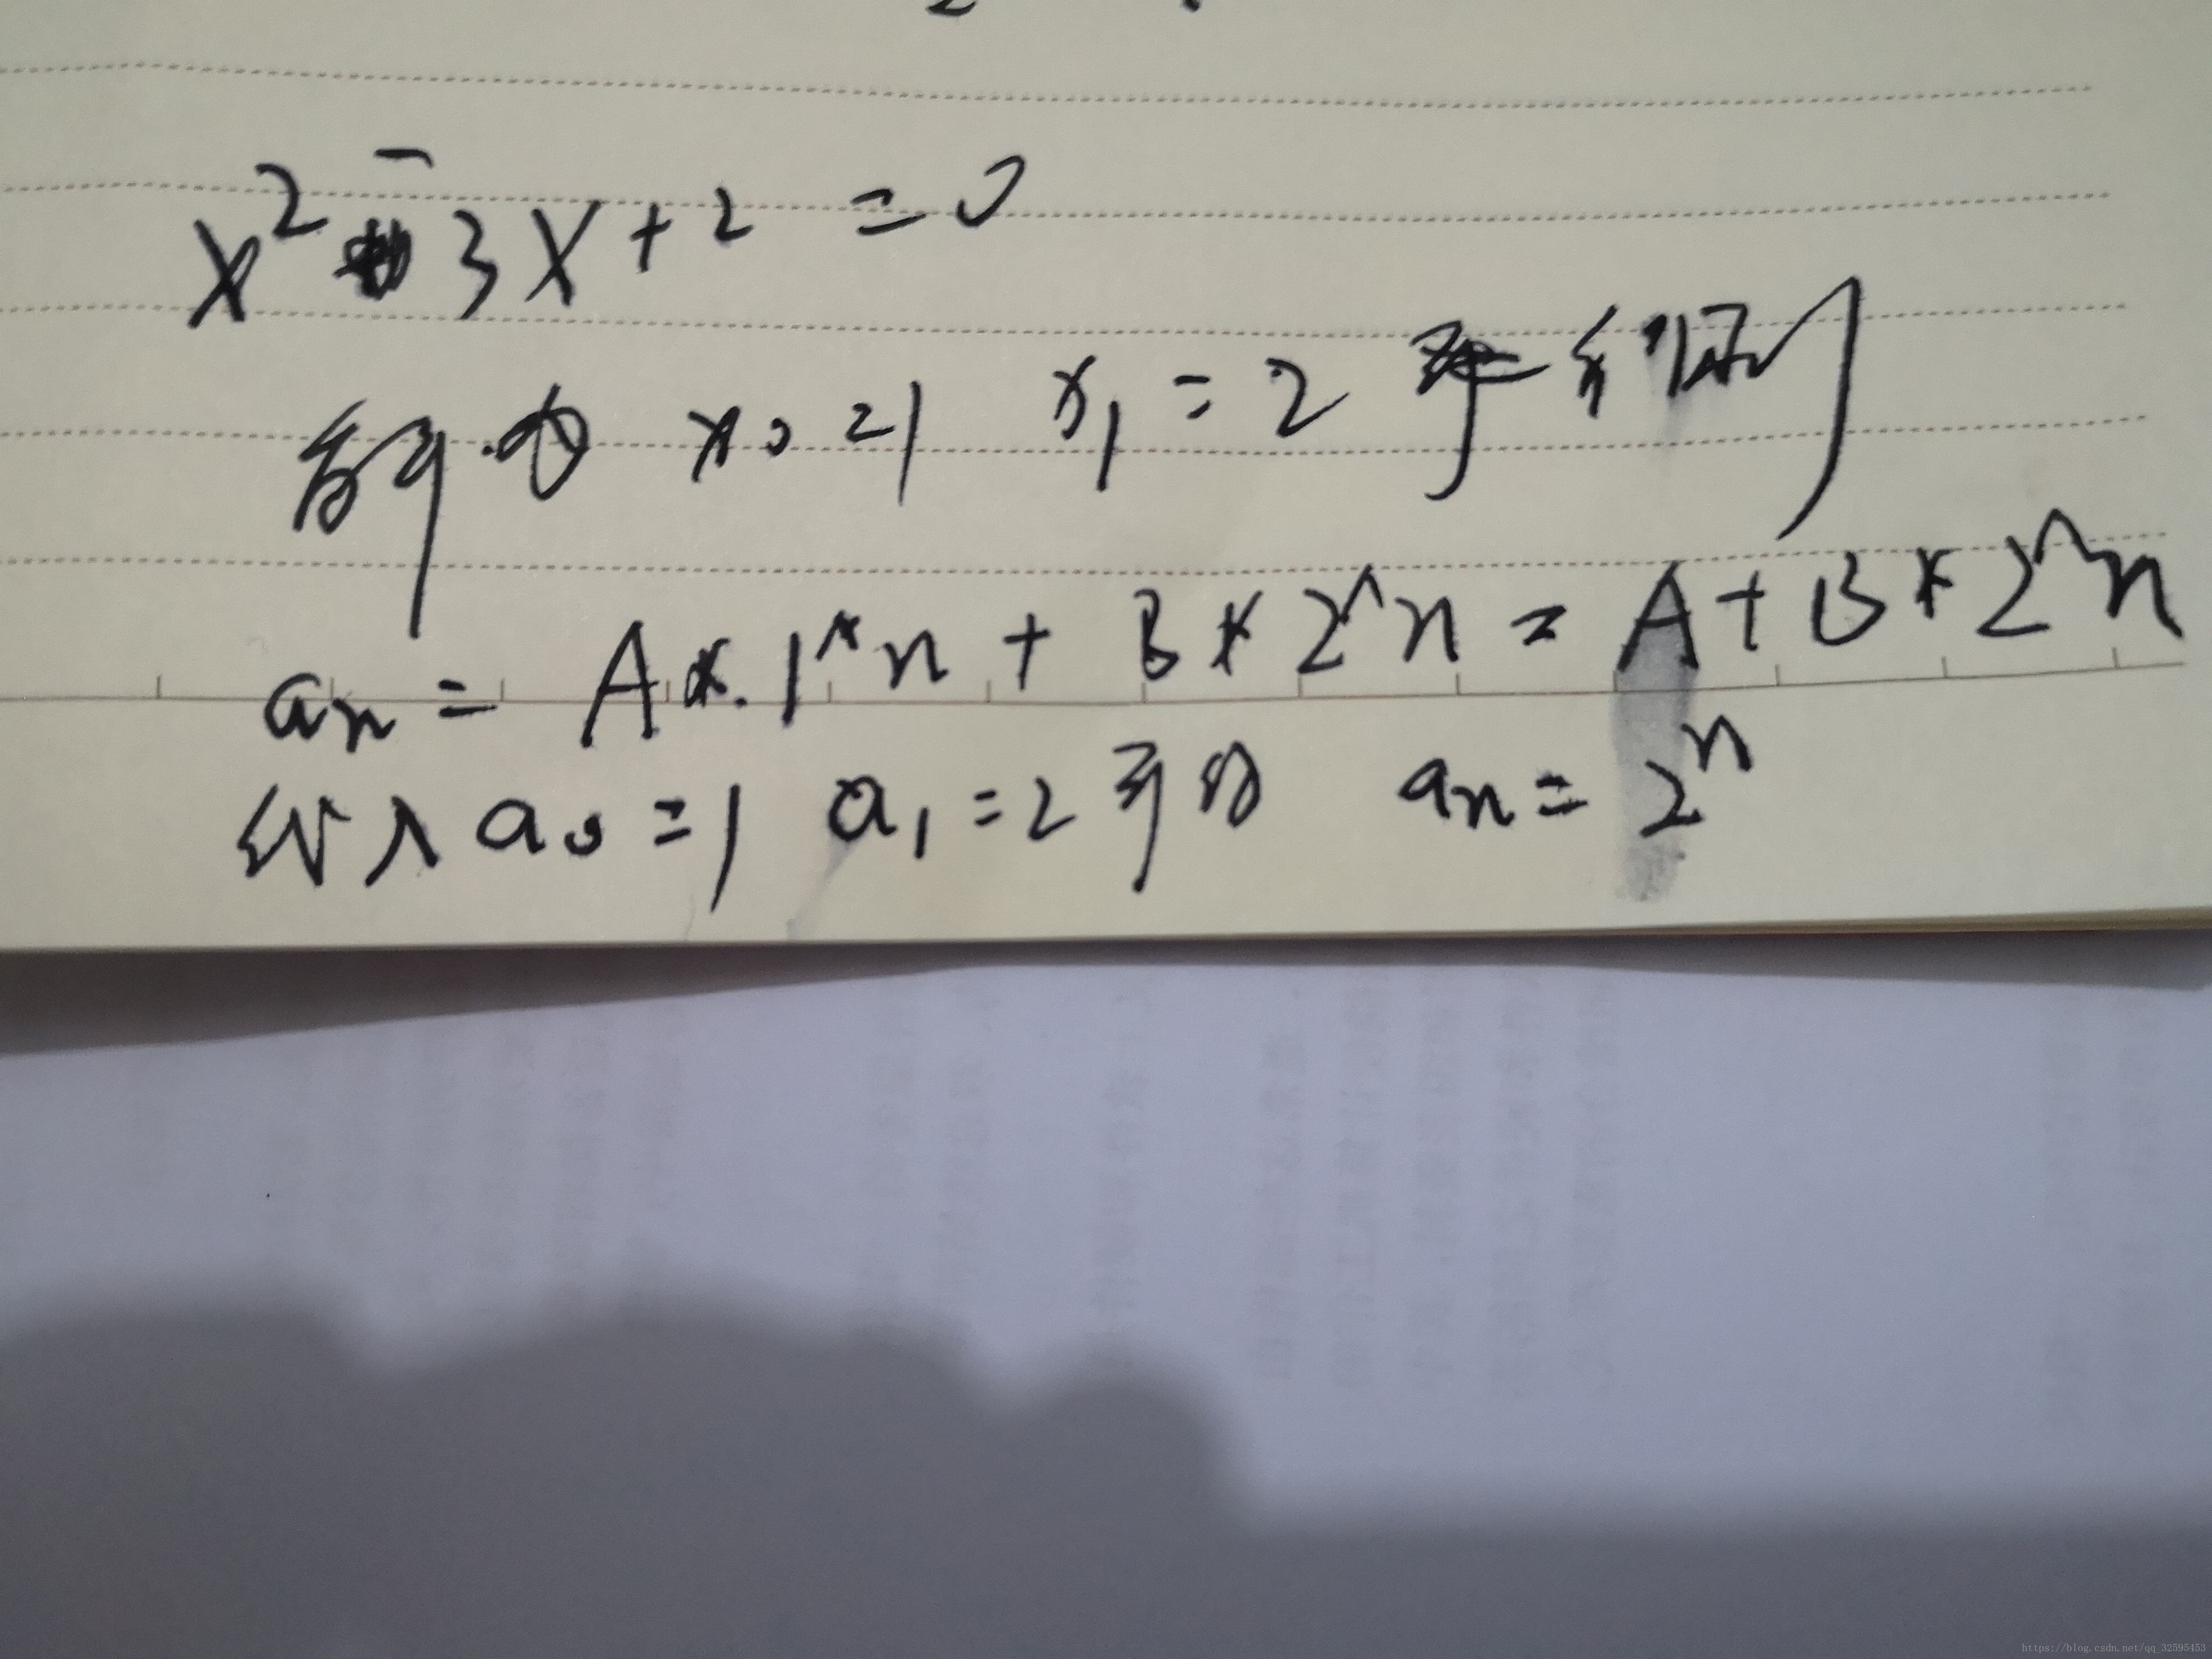 x² - 3x + 2 = 0
解为 x₀ = 1 x₁ = 2
aₙ = A * 1^n + B * 2^n = A + B * 2^n
代入 a₀ = 1 a₁ = 2 可得 aₙ = 2ⁿ
https://blog.csdn.net/qq_32595453